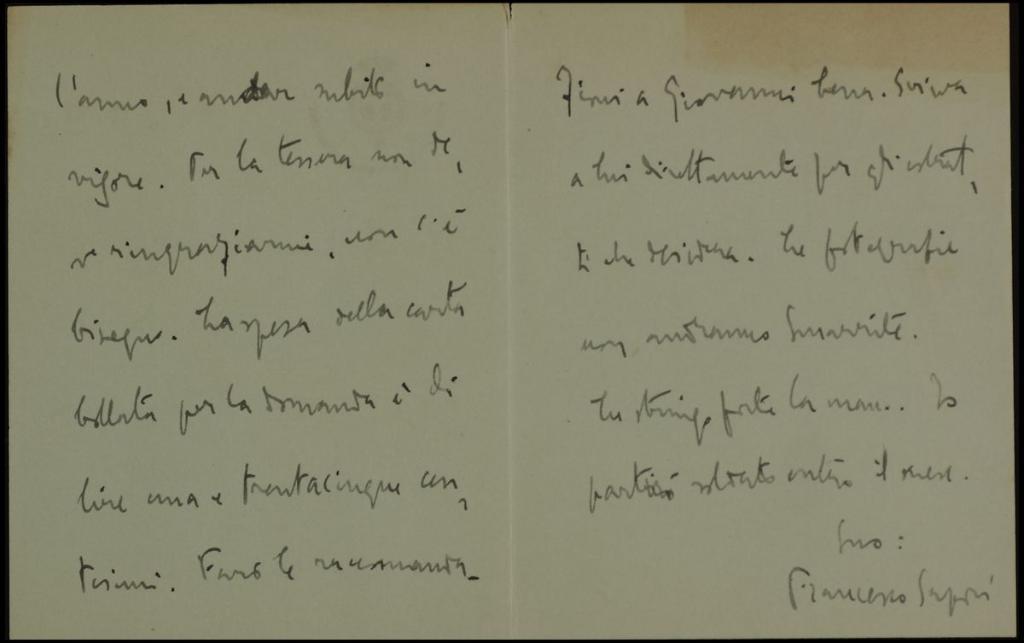 l'anno, e andar subito in
vigore. Per la tessera non de,
ve ringraziarmi, non c'è
bisogno. La spesa della carta
bollata per la domanda è di
lire una e trentacinque cen,
tesimi. Farò le raccomanda-
zioni a Giovanni Cena. Scriva
a lui direttamente per gli estrat,
ti che desidera. Le fotografie
non andranno smarrite.
Le stringo forte la mano. Io
partirò soldato entro il mese.
Suo:
Francesco Sapori